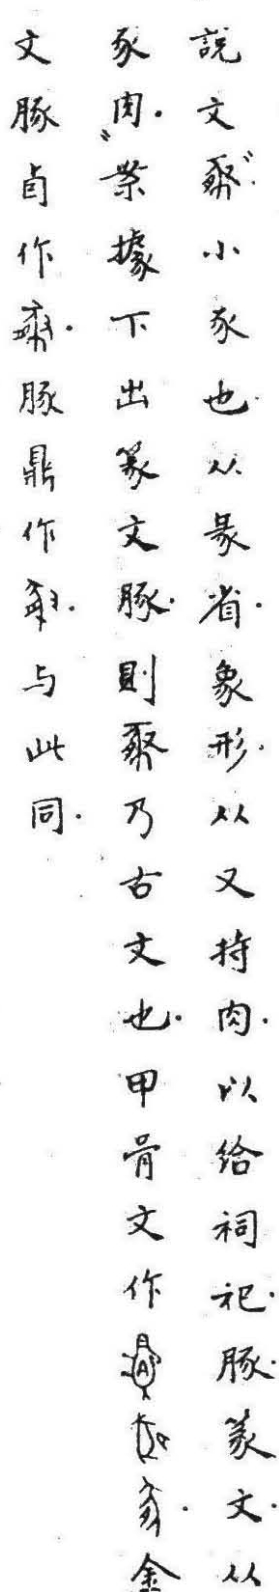 說文𢑓小豕也从彖省象形从又持肉以給祠祀豚篆文从
豕肉案據下出篆文豚則𢑓乃古文也甲骨文作金
文豚卣作豚鼎作与此同